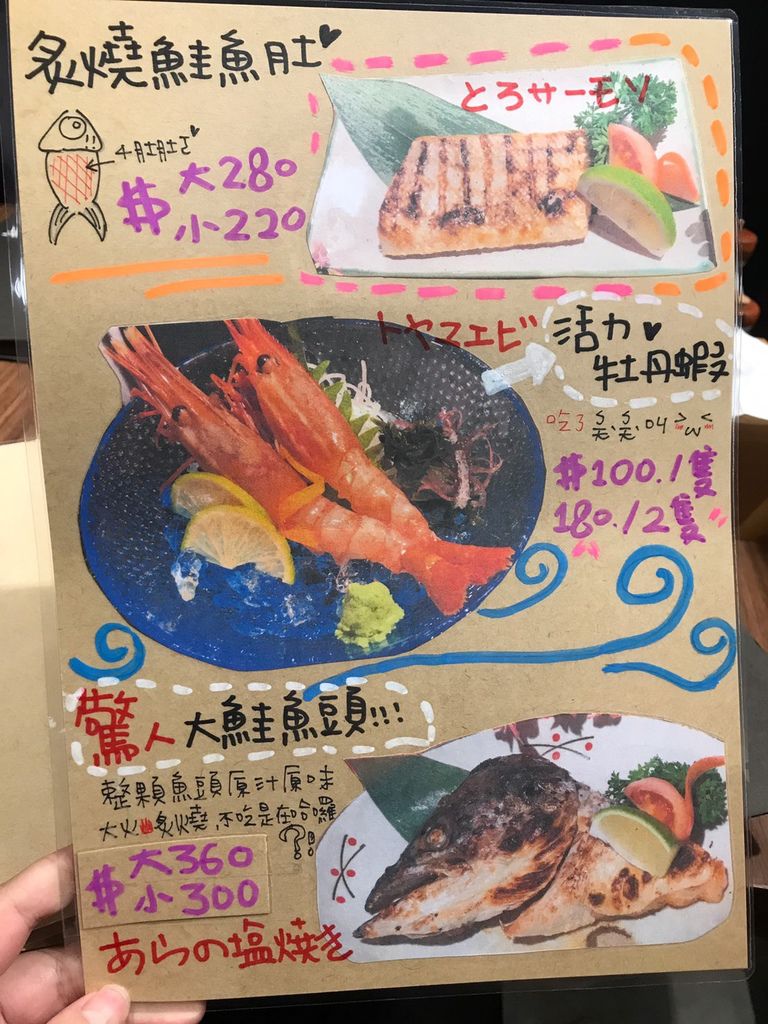 炙燒鮭魚肚
とろサーモン
肚肚了
$ 大280
小220
トヤマエビ
活力
牡丹蝦
吃了
$100./1隻
180./2隻
驚人大鮭魚頭!!!
整顆魚頭原汁原味
大火炙燒,不吃是在哈囉
?!
$ 大360
小300
あらの塩焼き